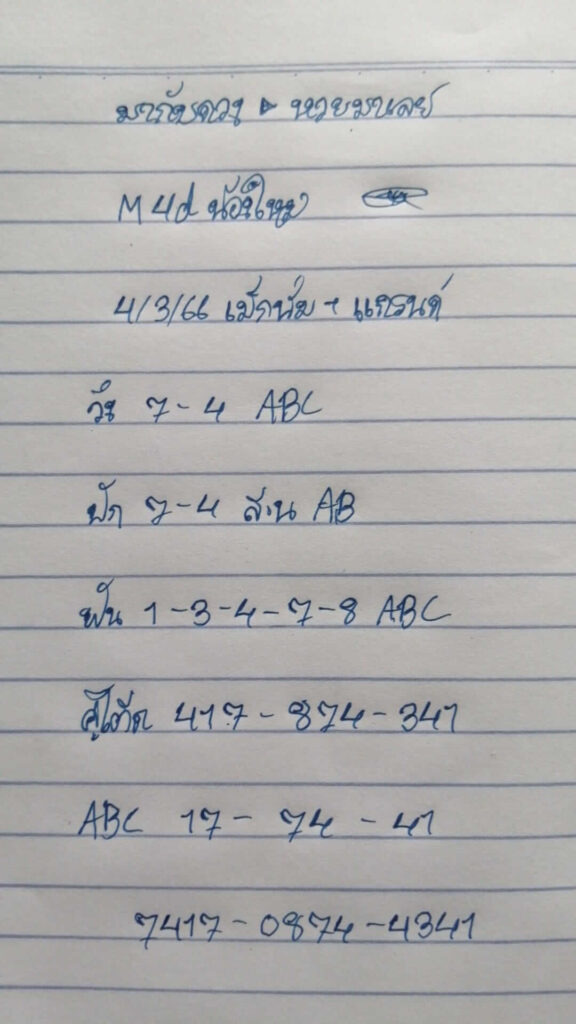 มากับดวง ▸ หวยมาเลย์
M 4d น้องใหม่
4/3/66 เม็กนั่ม + แกรนด์
วิ่ง 7-4 ABC
ปัก 7-4 ส่วน AB
ฟัน 1-3-4-7-8 ABC
คู่โต๊ด 417-874-341
ABC 17- 74 - 41
7417-0874-4341